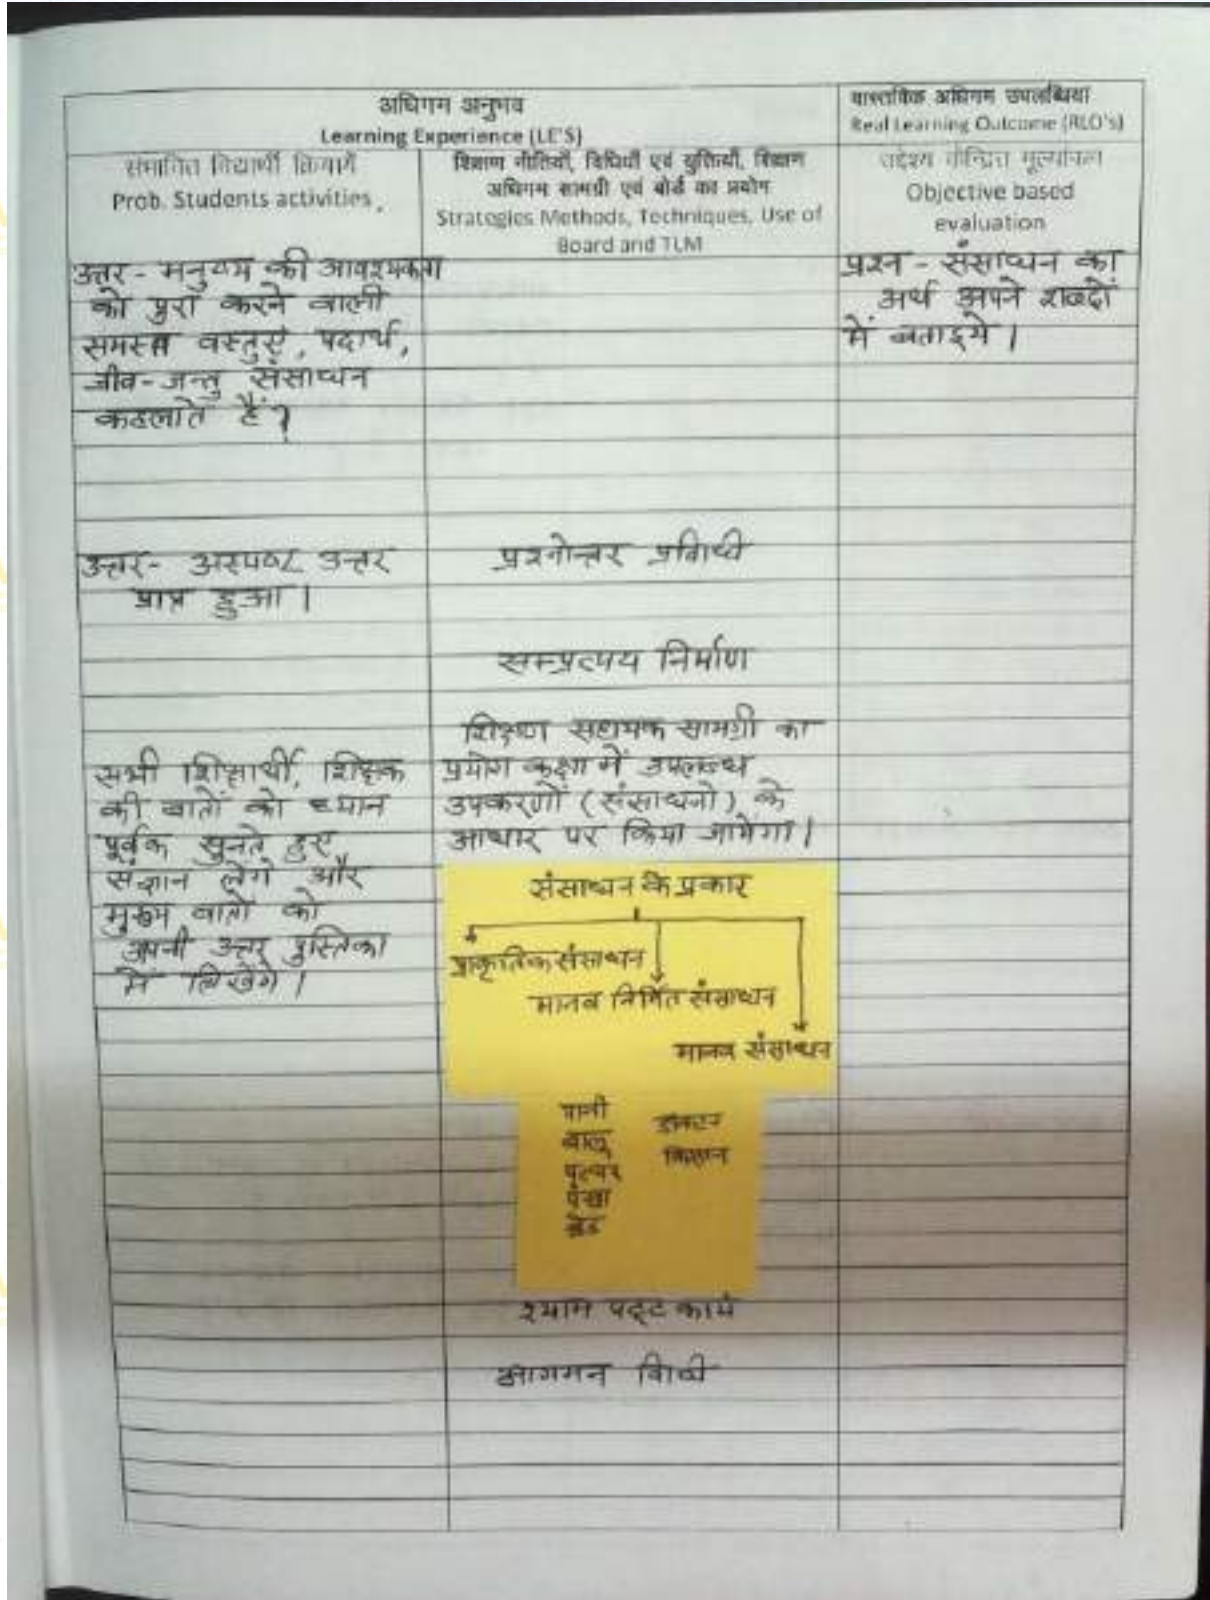 अधिगम अनुभव
Learning Experience (LE'S)
वास्तविक अधिगम उपलब्धियां
Real Learning Outcome (RLO's)
संभावित विद्यार्थी क्रियायें
Prob. Students activities
शिक्षण नीतियाँ, विधियाँ एवं युक्तियाँ, शिक्षण
अधिगम सामग्री एवं बोर्ड का प्रयोग
Strategies Methods, Techniques, Use of
Board and TLM
उद्देश्य केन्द्रित मूल्यांकन
Objective based
evaluation
उत्तर - मनुष्य की आवश्यकता
को पुरा करने वाली
समस्त वस्तुएं, पदार्थ,
जीव-जन्तु संसाधन
कहलाते हैं?
उत्तर- अस्पष्ट उत्तर
प्राप्त हुआ।
सभी शिक्षार्थी, शिक्षक
की बातों को ध्यान
पूर्वक सुनते हुए
संज्ञान लेंगे और
मुख्य बातों को
अपनी उत्तर पुस्तिका
में लिखेंगे।
प्रश्नोत्तर प्रविधि
सम्प्रत्यय निर्माण
शिक्षण सहायक सामग्री का
प्रयोग कक्षा में उपलब्ध
उपकरणों (संसाधनो) के
आधार पर किया जायेगा।
संसाधन के प्रकार
प्राकृतिक संसाधन
मानव निर्मित संसाधन
मानव संसाधन
पानी डॉक्टर
बालू किसान
पत्थर
पंखा
ब्रेड
श्याम पट्ट कार्य
आगमन विधि
प्रश्न - संसाधन का
अर्थ अपने शब्दों
में बताइये।